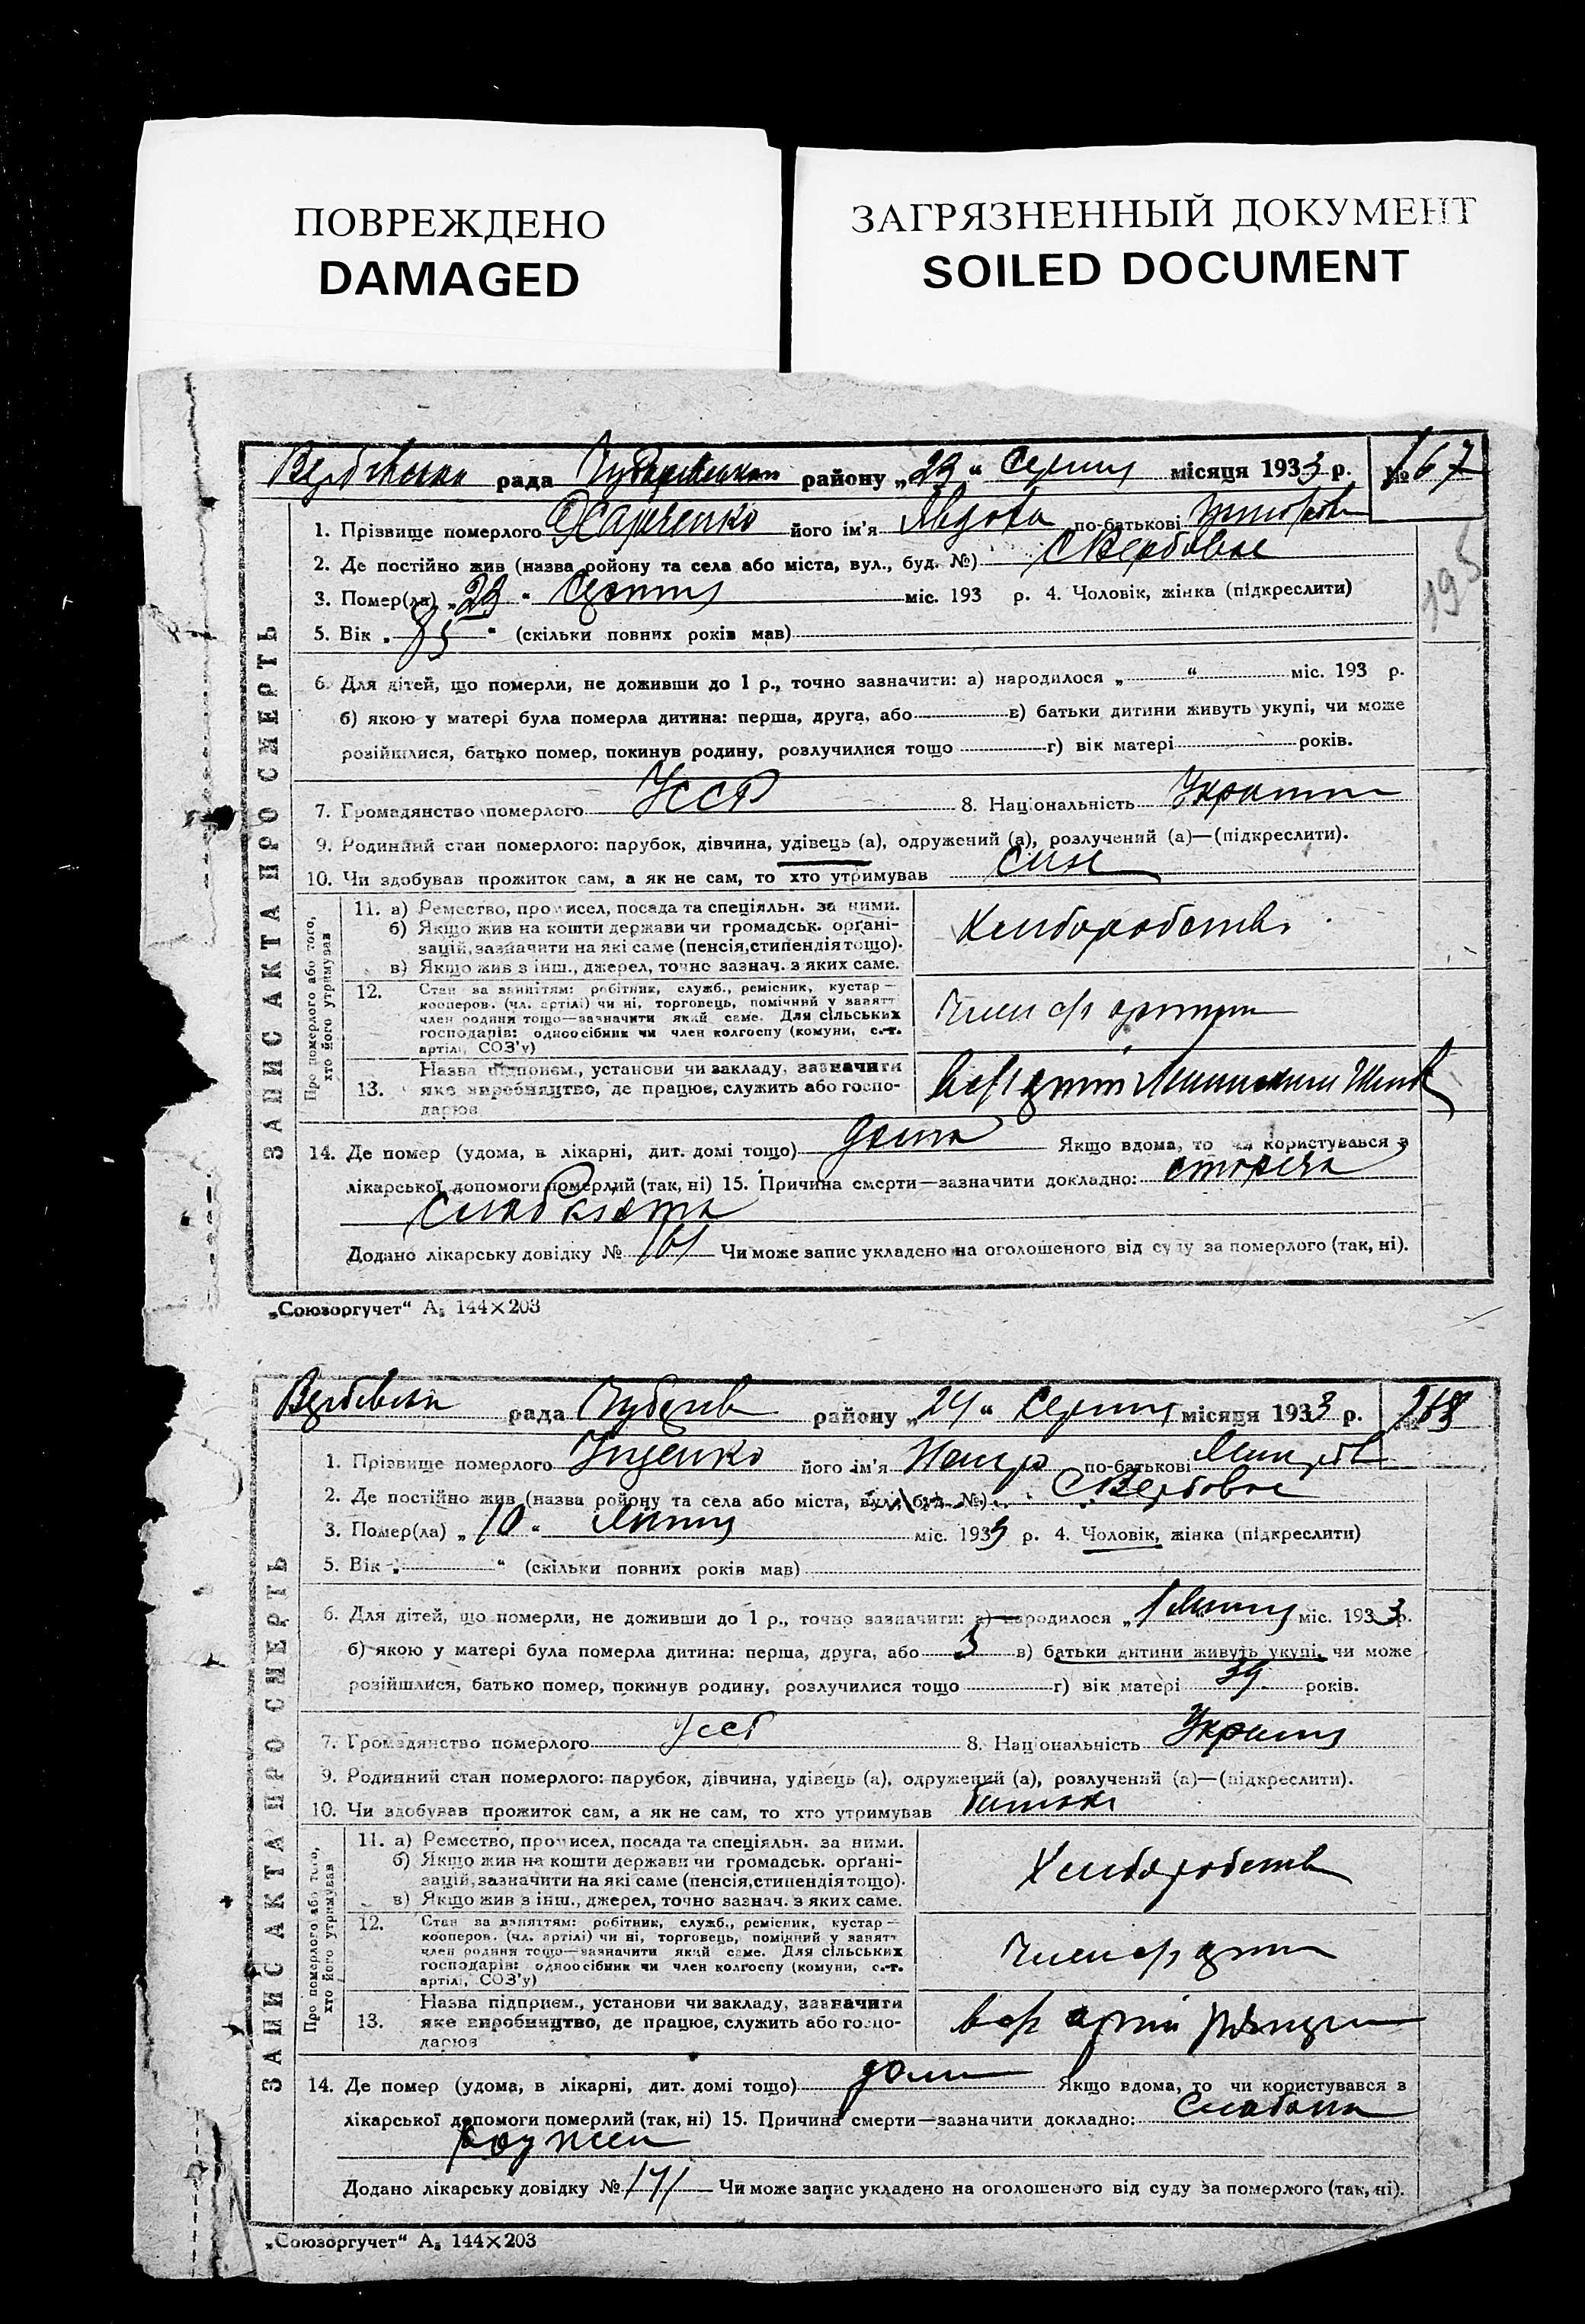 ПОВРЕЖДЕНО
DAMAGED
ЗАГРЯЗНЕННЫЙ ДОКУМЕНТ
SOILED DOCUMENT
рада району „23“ Серпня місяця 1933 р. № 167
195
1. Прізвище померлого його ім'я Явдоха по-батькові
2. Де постійно жив (назва району та села або міста, вул., буд. №) С Вербове
3. Помер(ла) „23“ Серпня міс. 193 р. 4. Чоловік, жінка (підкреслити)
5. Вік „85“ (скільки повних років мав)
6. Для дітей, що померли, не доживши до 1 р., точно зазначити: а) народилося „ “ міс. 193 р.
б) якою у матері була померла дитина: перша, друга, або в) батьки дитини живуть укупі, чи може
розійшлися, батько помер, покинув родину, розлучилися тощо г) вік матері років.
7. Громадянство померлого УССР 8. Національність
9. Родинний стан померлого: парубок, дівчина, удівець (а), одружений (а), розлучений (а)—(підкреслити).
10. Чи здобував прожиток сам, а як не сам, то хто утримував син
ЗАПИС АКТА ПРО СМЕРТЬ
Про померлого або того, хто його утримував
11. а) Ремество, промисел, посада та спеціяльн. за ними.
б) Якщо жив на кошти держави чи громадськ. орґані-
зацій, зазначити на які саме (пенсія, стипендія тощо).
в) Якщо жив з інш., джерел, точно зазнач. з яких саме.
12. Стан за заняттям: робітник, служб., ремісник, кустар—
кооперов. (чл. артілі) чи ні, торговець, помічний у занятт
член родини тощо—зазначити який саме. Для сільських
господарів: одноосібник чи член колгоспу (комуни, с.-г.
артілі, СОЗ'у)
13. Назва підприєм., установи чи закладу, зазначити
яке виробництво, де працює, служить або госпо-
дарює
14. Де помер (удома, в лікарні, дит. домі тощо) дома Якщо вдома, то чи користувався з
лікарської допомоги померлий (так, ні) 15. Причина смерти—зазначити докладно: стареча
Додано лікарську довідку № 161 Чи може запис укладено на оголошеного від суду за померлого (так, ні).
„Союзоргучет“ А₅ 144×203
рада району „24“ Серпня місяця 1933 р. 168
1. Прізвище померлого його ім'я по-батькові
2. Де постійно жив (назва району та села або міста, вул., буд. №) С Вербове
3. Помер(ла) „10“ Липня міс. 1933 р. 4. Чоловік, жінка (підкреслити)
5. Вік „ “ (скільки повних років мав)
6. Для дітей, що померли, не доживши до 1 р., точно зазначити: а) народилося „1 Липня міс. 1933 р.
б) якою у матері була померла дитина: перша, друга, або 3 в) батьки дитини живуть укупі, чи може
розійшлися, батько помер, покинув родину, розлучилися тощо г) вік матері років.
7. Громадянство померлого УССР 8. Національність
9. Родинний стан померлого: парубок, дівчина, удівець (а), одружений (а), розлучений (а)—(підкреслити).
10. Чи здобував прожиток сам, а як не сам, то хто утримував батько
ЗАПИС АКТА ПРО СМЕРТЬ
Про померлого або того, хто його утримував
11. а) Ремество, промисел, посада та спеціяльн. за ними.
б) Якщо жив на кошти держави чи громадськ. орґані-
зацій, зазначити на які саме (пенсія, стипендія тощо).
в) Якщо жив з інш., джерел, точно зазнач. з яких саме.
12. Стан за заняттям: робітник, служб., ремісник, кустар—
кооперов. (чл. артілі) чи ні, торговець, помічний у занятт
член родини тощо—зазначити який саме. Для сільських
господарів: одноосібник чи член колгоспу (комуни, с.-г.
артілі, СОЗ'у)
13. Назва підприєм., установи чи закладу, зазначити
яке виробництво, де працює, служить або госпо-
дарює
14. Де помер (удома, в лікарні, дит. домі тощо) дома Якщо вдома, то чи користувався з
лікарської допомоги померлий (так, ні) 15. Причина смерти—зазначити докладно:
Додано лікарську довідку № 171 Чи може запис укладено на оголошеного від суду за померлого (так, ні).
„Союзоргучет“ А₅ 144×203